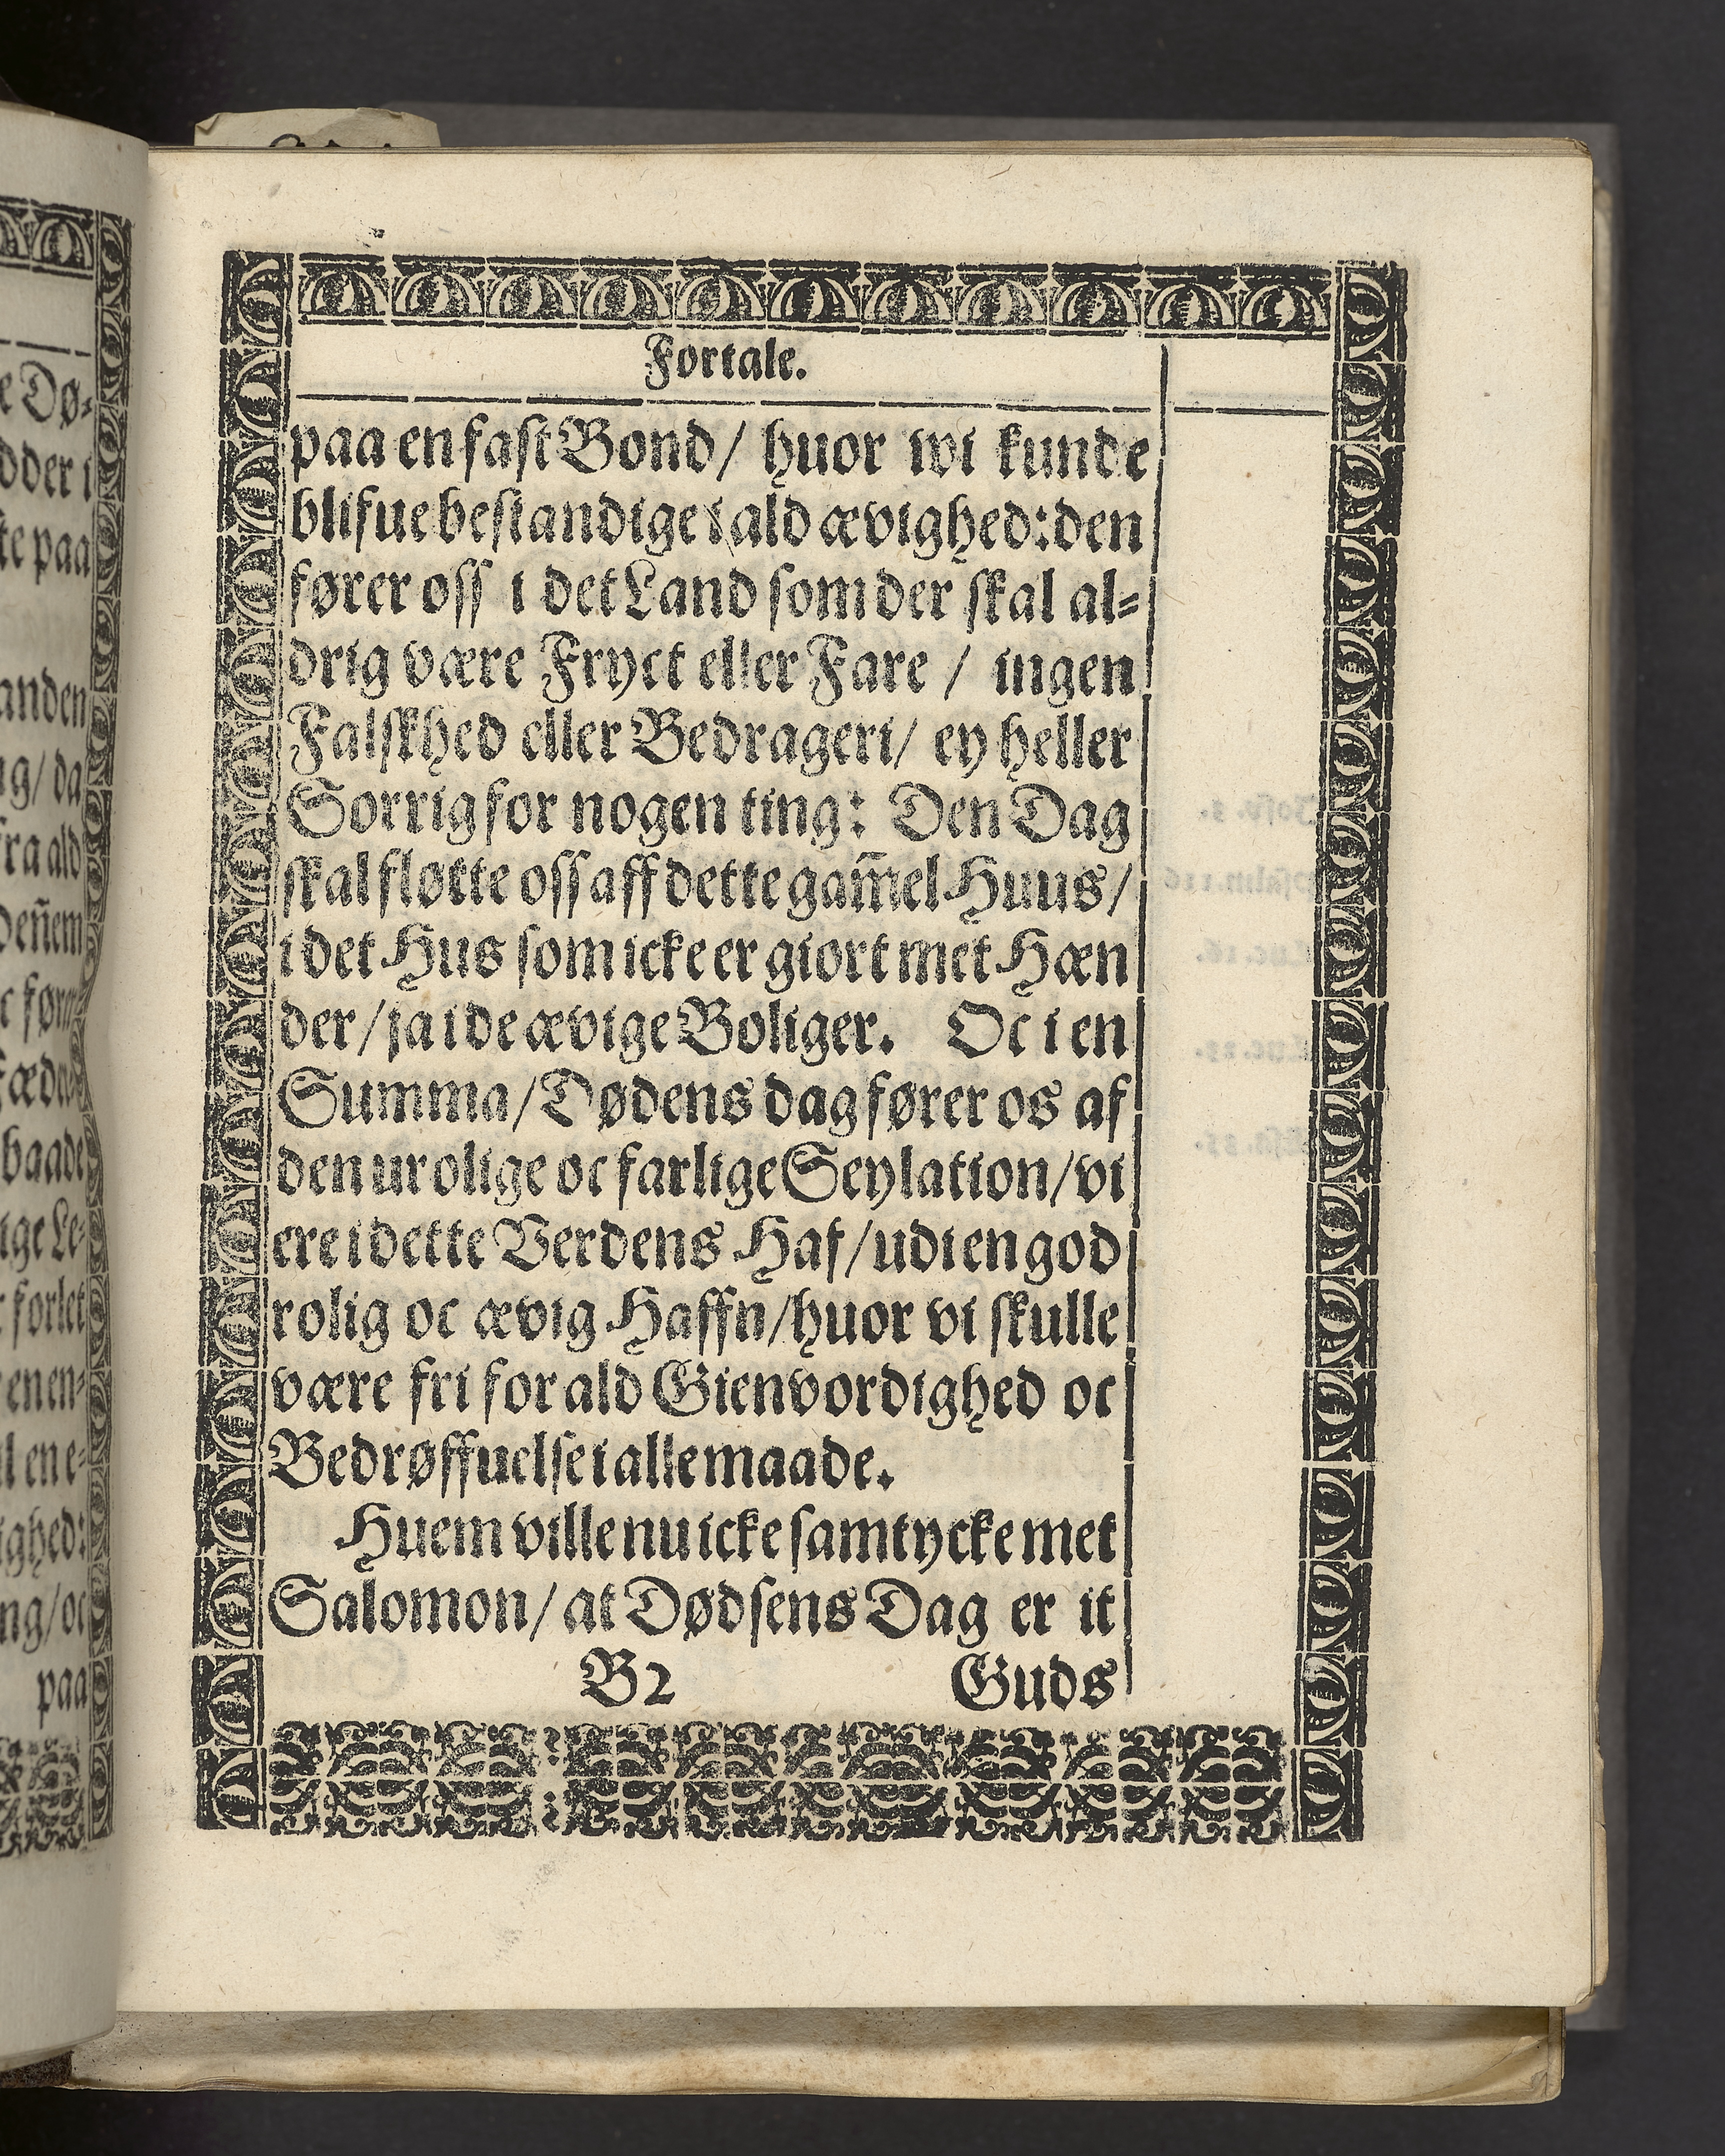 Fortale.
paa en fast Bond/ huor wi kunde
blifue bestandige i ald ævighed: den
fører oss i det Land som der skal al-
drig være Fryct eller Fare / ingen
Falskhed eller Bedrageri/ ey heller
Sorrig for nogen ting: Den Dag
skal fløtte oss aff dette gam̃el Huus/
i det Hus som icke er giort met Hæn
der/ ja i de ævige Boliger. Oc i en
Summa/ Dødens dag fører os af
den urolige oc farlige Seylation/ vi
ere i dette Verdens Haf/ udi en god
rolig oc ævig Haffn/ huor vi skulle
være fri for ald Gienvordighed oc
Bedrøffuelse i alle maade.
Huem ville nu icke samtycke met
Salomon/ at Dødsens Dag er it
B2 Guds